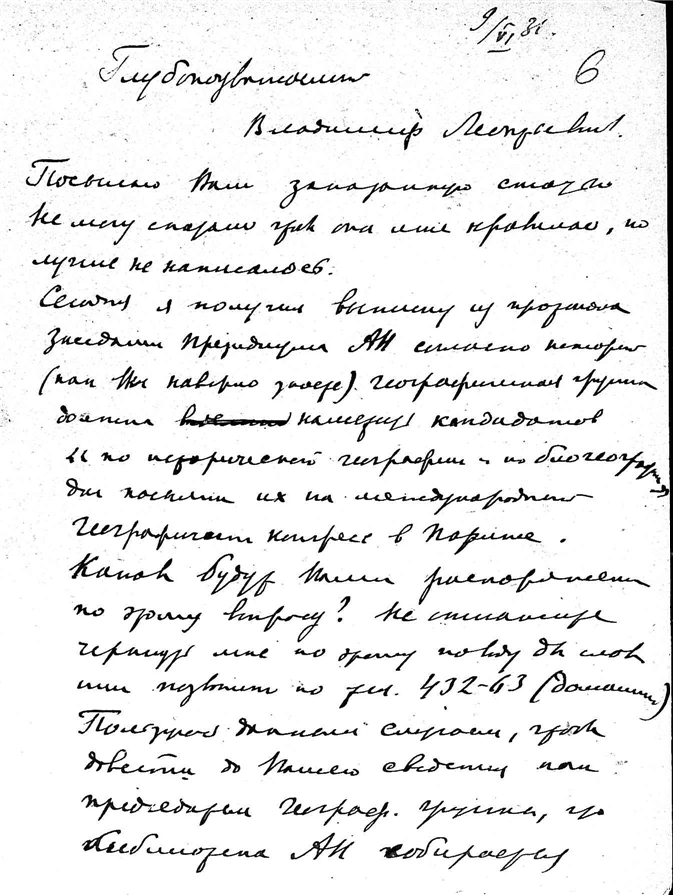 9/VI 31.
6
Глубокоуважаемый
Владимир Леонтьевич.
Посылаю Вам заказанную статью
Не могу сказать чтоб она мне нравилась, но
лучше не написалось.
Сегодня я получил выписку из протокола
заседания Президиума АН согласно которой
(как Вы наверно знаете) географическая группа
должна наметить кандидатов
и по исторической географии и по биогеографии
для посылки их на международный
географический конгресс в Париже.
Каковы будут Ваши распоряжения
по этому вопросу? Не откажите
черкнуть мне по этому поводу два слова
или позвонить по тел. 432-63 (домашний)
Пользуюсь данным случаем, чтоб
довести до Вашего сведения как
председателя географ. группы, что
библиотека АН собирается